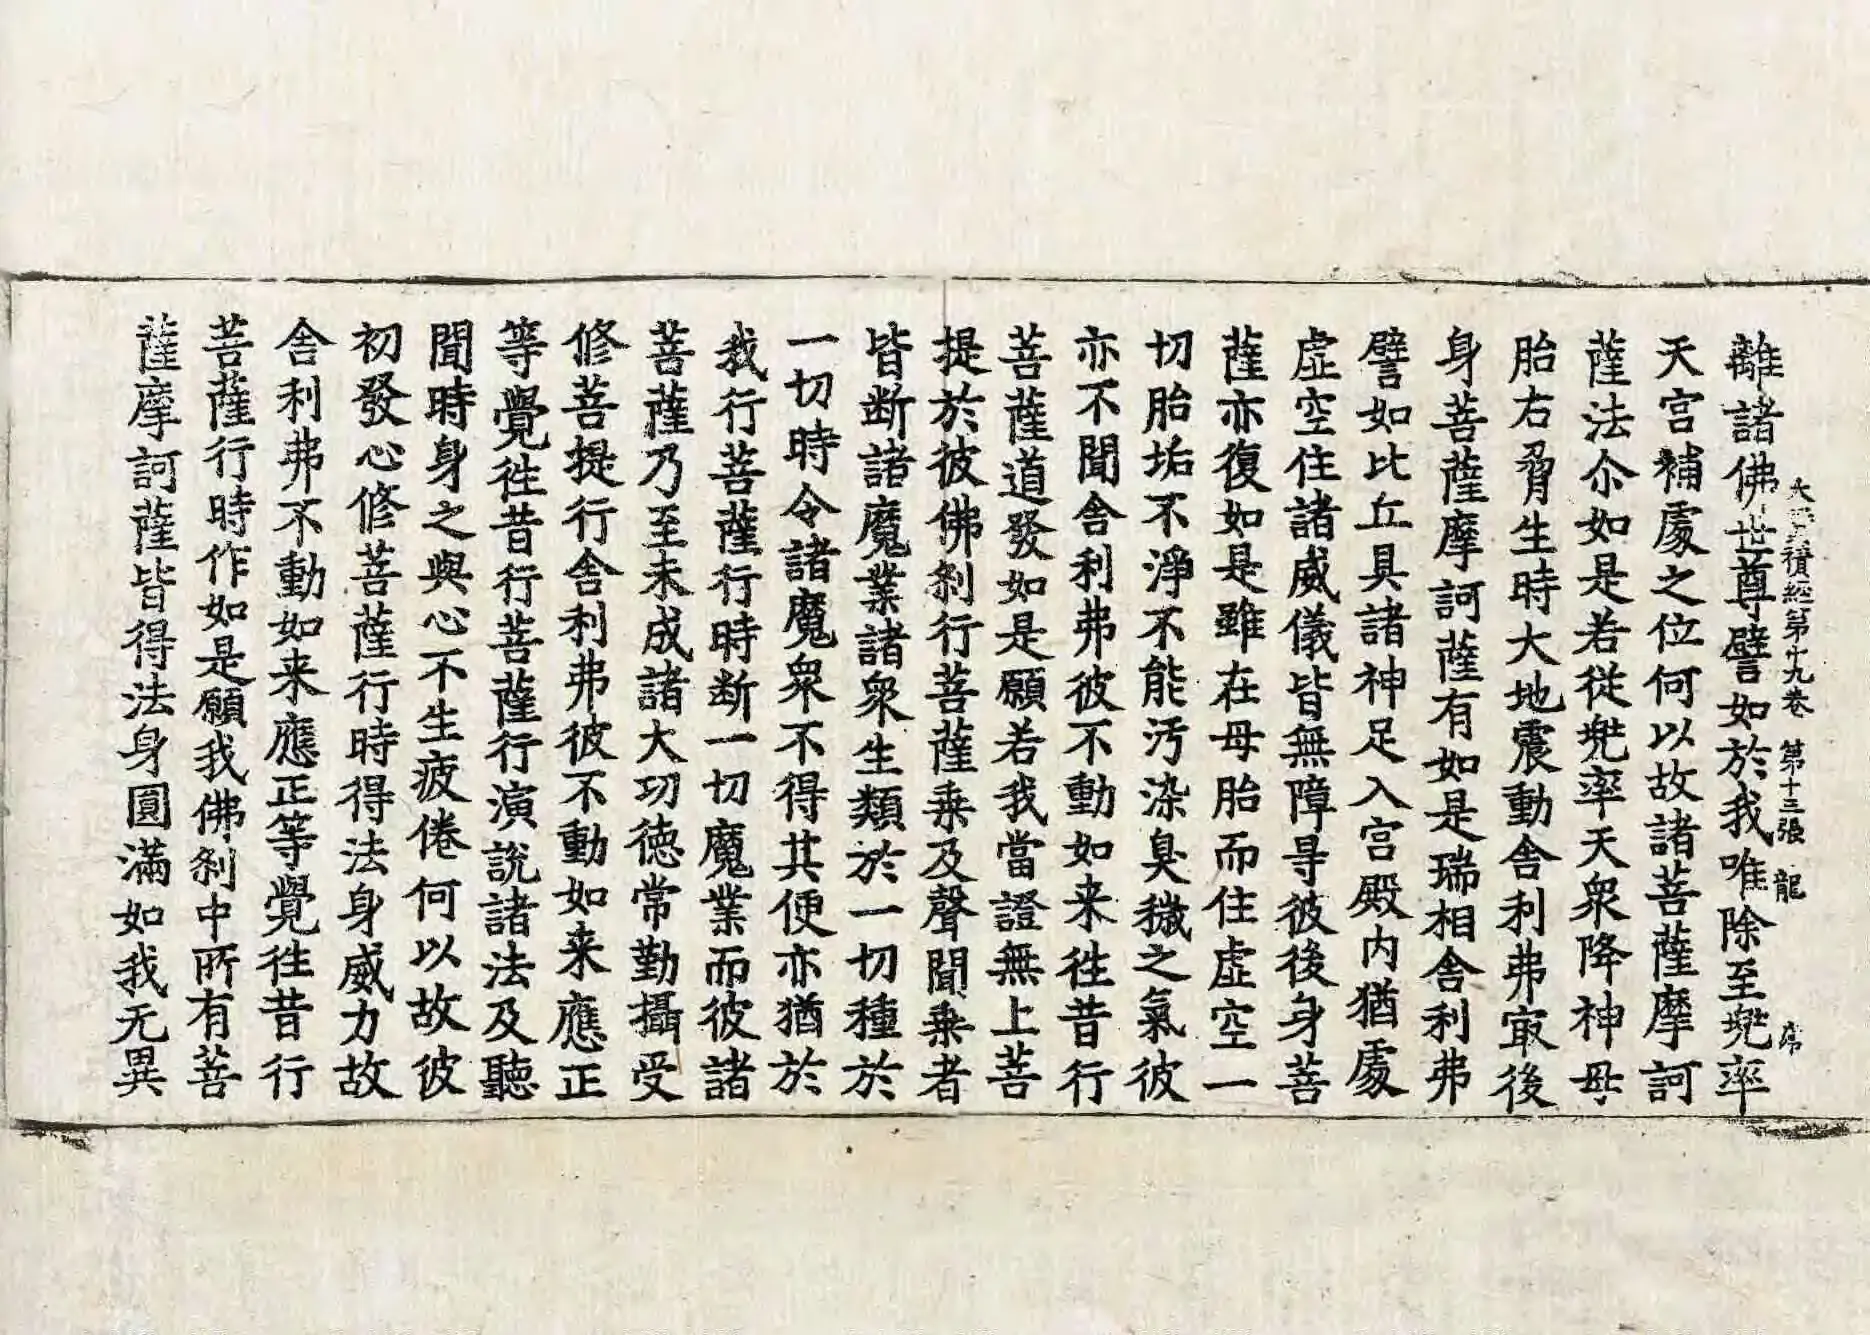 大寶積經第十九卷 第十三張 龍
離諸佛世尊譬如於我唯除至兠率
天宫補處之位何以故諸菩薩摩訶
薩法尒如是若從兠率天衆降神母
胎右脅生時大地震動舍利弗㝡後
身菩薩摩訶薩有如是瑞相舍利弗
譬如比丘具諸神足入宫殿内猶處
虚空住諸威儀皆無障㝵彼後身菩
薩亦復如是雖在母胎而住虚空一
切胎垢不淨不能汚染臭穢之氣彼
亦不聞舍利弗彼不動如来徃昔行
菩薩道發如是願若我當證無上菩
提於彼佛剎行菩薩乘及聲聞乘者
皆断諸魔業諸衆生類於一切種於
一切時令諸魔衆不得其便亦猶於
我行菩薩行時断一切魔業而彼諸
菩薩乃至未成諸大功德常勤攝受
修菩提行舍利弗彼不動如来應正
等覺徃昔行菩薩行演說諸法及聽
聞時身之與心不生疲倦何以故彼
初發心修菩薩行時得法身威力故
舍利弗不動如来應正等覺徃昔行
菩薩行時作如是願我佛剎中所有菩
薩摩訶薩皆得法身圓滿如我无異